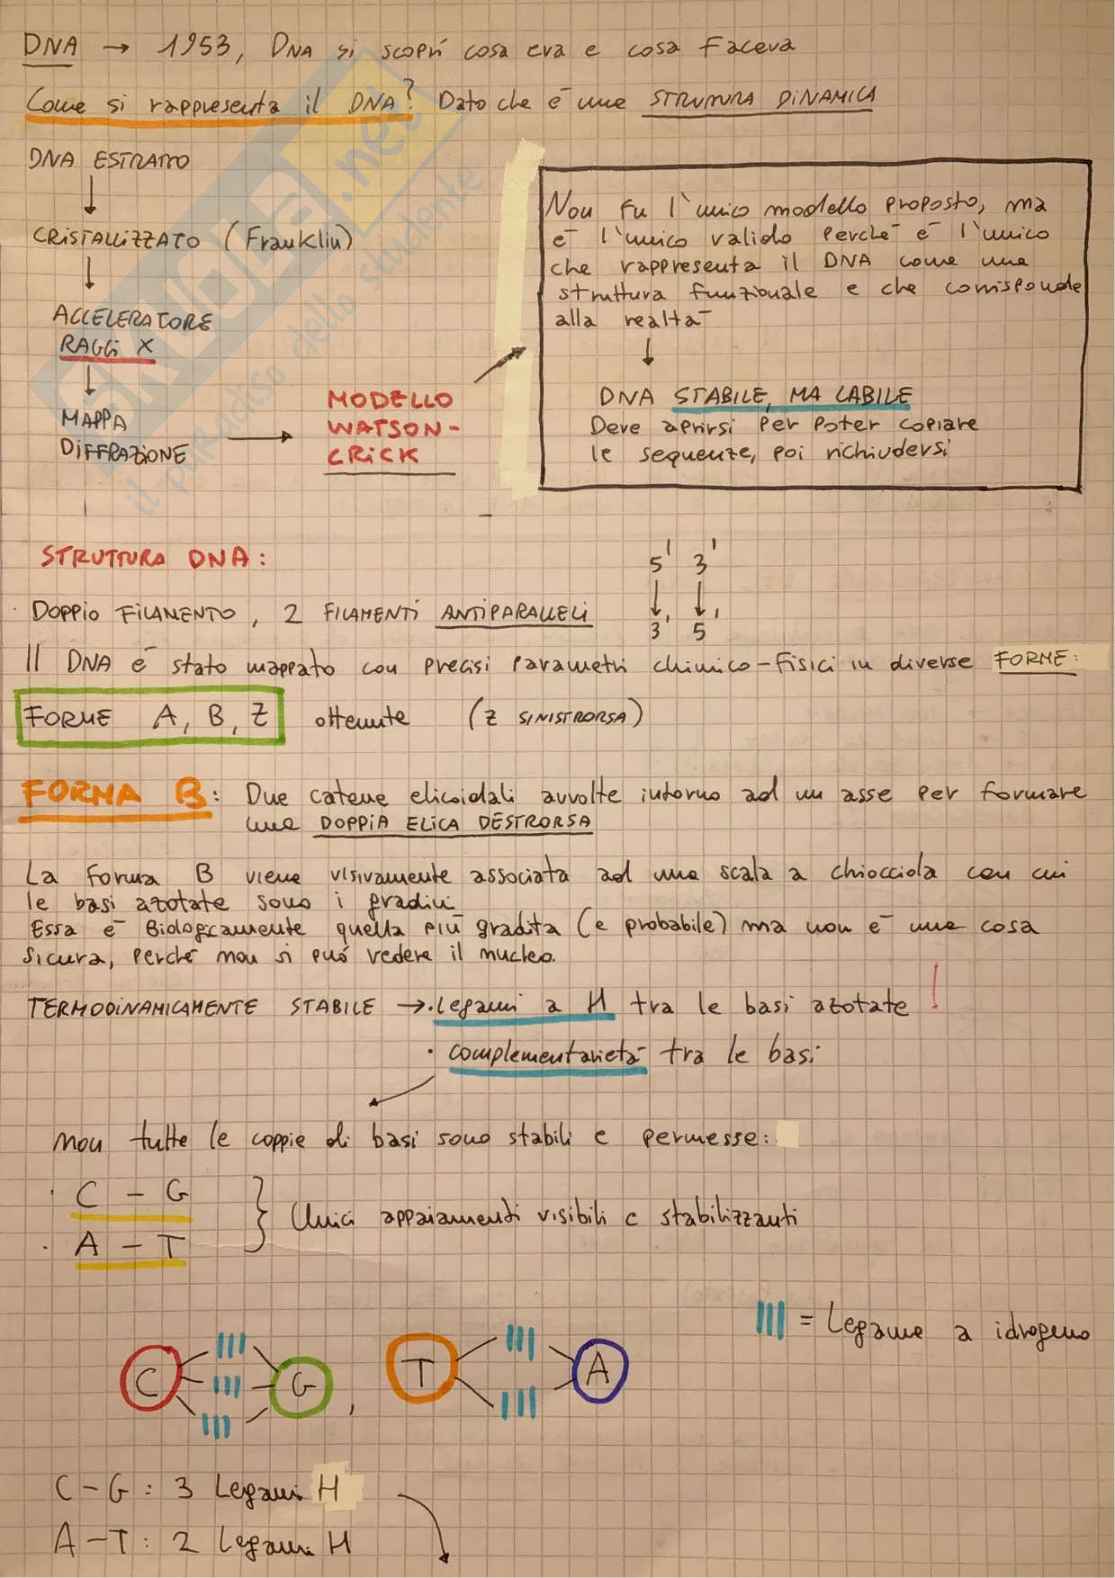 DNA → 1953, DNA si scoprì cosa era e cosa faceva
Come si rappresenta il DNA? Dato che è una STRUTTURA DINAMICA
DNA ESTRATTO
↓
CRISTALLIZZATO (Franklin)
↓
ACCELERATORE
RAGGI X
↓
MAPPA
DIFFRAZIONE
→
MODELLO
WATSON-
CRICK
Non fu l'unico modello proposto, ma
è l'unico valido perché è l'unico
che rappresenta il DNA come una
struttura funzionale e che corrisponde
alla realtà
↓
DNA STABILE, MA LABILE
Deve aprirsi per poter copiare
le sequenze, poi richiudersi
STRUTTURA DNA:
5' 3'
↓ ↓
3' 5'
· DOPPIO FILAMENTO, 2 FILAMENTI ANTIPARALLELI
Il DNA è stato mappato con precisi parametri chimico-fisici in diverse FORME:
FORME A, B, Z ottenute (Z SINISTRORSA)
FORMA B: Due catene elicoidali avvolte intorno ad un asse per formare
una DOPPIA ELICA DESTRORSA
La forma B viene visivamente associata ad una scala a chiocciola con cui
le basi azotate sono i gradini.
Essa è Biologicamente quella più gradita (e probabile) ma non è una cosa
sicura, perché non si può vedere il nucleo.
TERMODINAMICAMENTE STABILE → · legami a H tra le basi azotate !
· complementarietà tra le basi
non tutte le coppie di basi sono stabili e permesse:
· C - G
· A - T
} Unici appaiamenti visibili e stabilizzanti
||| = Legame a idrogeno
C ||| ||| ||| G , T ||| ||| A
C-G: 3 Legami H
A-T: 2 Legami H
SKUOLA.net
il paradiso dello studente